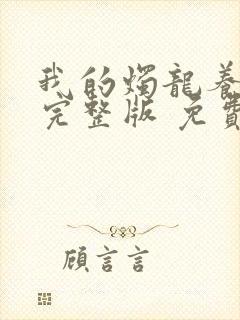 我的燭龍養
完整版 免費
顧言言